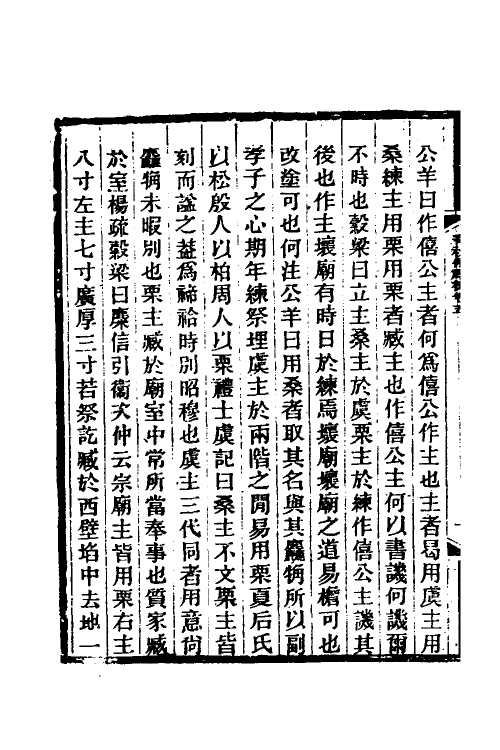 公羊曰作僖公主者何爲僖公作主也主者曷用虞主用
桑練主用栗用栗者臧主也作僖公主何以書譏何譏爾
不時也穀梁曰立主桑主於虞栗主於練作僖公主譏其
後也作主壞廟有時日於練焉壞廟壞廟之道易檐可也
改塗可也何注公羊曰用桑者取其名與其麤觕所以副
孝子之心期年練祭埋虞主於兩階之閒易用栗夏后氏
以松殷人以柏周人以栗禮士虞記曰桑主不文栗主皆
刻而謚之蓋爲禘祫時別昭穆也虞主三代同者用意尙
麤觕未暇別也栗主臧於廟室中常所當奉事也質家臧
於室楊疏穀梁曰麋信引衞次仲云宗廟主皆用栗右主
八寸左主七寸廣厚三寸若祭訖臧於西壁埳中去地一